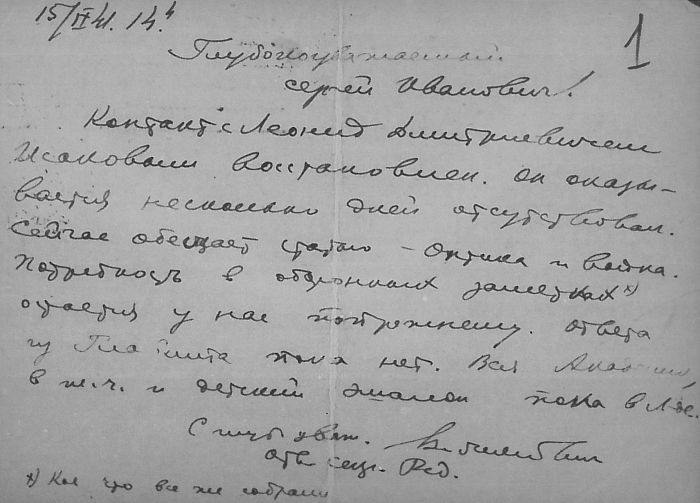 15/IX 41. 14.ч
1
Глубокоуважаемый
Сергей Иванович!
Контакт с Леонид Дмитриевичем
Исаковым восстановлен. Он оказы-
вается несколько дней отсутствовал.
Сейчас обещает статью – Оптика и война.
Потребность в оборонных заметках х)
остается у нас попрежнему. Ответа
Главлита пока нет. Вся
в т.ч. и детский эшелон пока в Л-де.
С глуб. уваж.
Отв. секр. Ред.
х) Кое что все же собрали